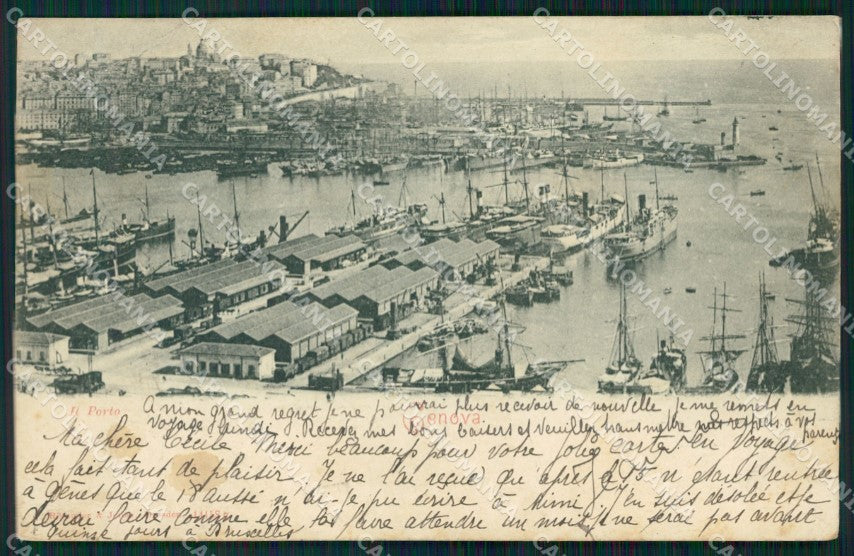 Il Porto
Genova.
A mon grand regret je ne pourrai plus recevoir de nouvelle je me remets en
voyage lundi. Recevez mes bons baisers et veuillez transmettre mes respects à vos
parents
Ma chère Cécile Merci beaucoup pour votre jolie carte en voyage
cela fait tant de plaisir. Je ne l'ai reçue qu'après n'étant rentrée
à Gênes que le 18 aussi n'ai-je pu écrire à Mimi. J'en suis désolée et je
devrai faire comme elle attendre un mois, je ne serai pas avant
quinze jours à Bruxelles
CARTOLINOMANIA